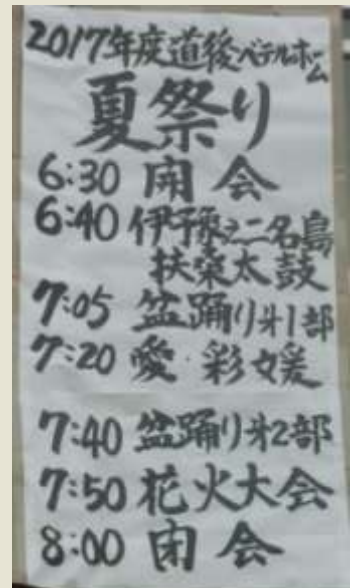 2017年度道後ベテルホーム
夏祭り
6:30 開会
6:40 伊予豫之二名島
扶桑太鼓
7:05 盆踊り㐧1部
7:20 愛・彩媛
7:40 盆踊り㐧2部
7:50 花火大会
8:00 閉会